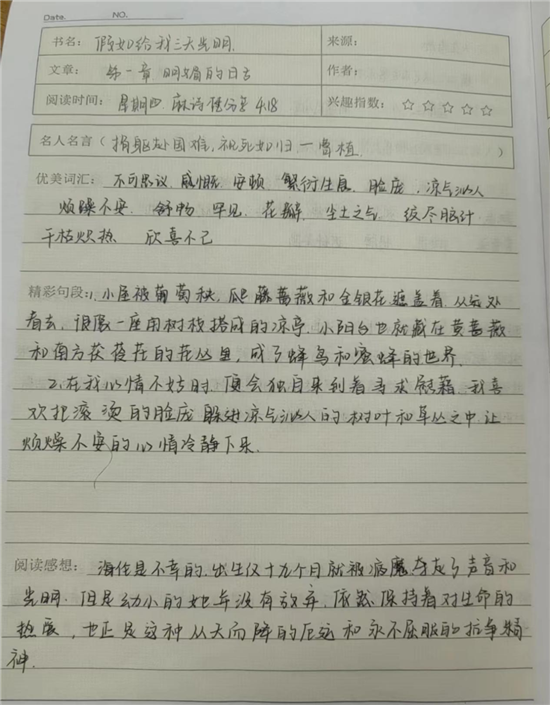 Date. NO.
书名：假如给我三天光明. 来源：
文章：第一章 明媚的日子 作者：
阅读时间：星期四 4.18 兴趣指数：☆ ☆ ☆ ☆ ☆
名人名言（ 捐躯赴国难，视死如归—曹植. ）
优美词汇：不可思议 感慨 安顿 繁衍生息 脸庞 凉气沁人
烦躁不安 舒畅 罕见 花瓣 尘土之气 绞尽脑汁
干枯炽热 欣喜不已
精彩句段：1.小屋被葡萄秧，爬藤蔷薇和金银花遮盖着.从远处
看去，很像一座用树枝搭成的凉亭.小阳台也就藏在黄蔷薇
和南方茯苓花的花丛里，成了蜂鸟和蜜蜂的世界.
2.在我心情不好时.便会独自来到着寻求慰藉，我喜
欢把滚烫的脸庞躲进凉气沁人的树叶和草丛之中，让
烦燥不安的心情冷静下来.
阅读感想：海伦是不幸的.出生仅十九个月就被病魔夺走了声音和
光明.但是幼小的她并没有放弃，依然保持着对生命的
热爱，也正是这种从天而降的厄运和永不屈服的抗争精
神.